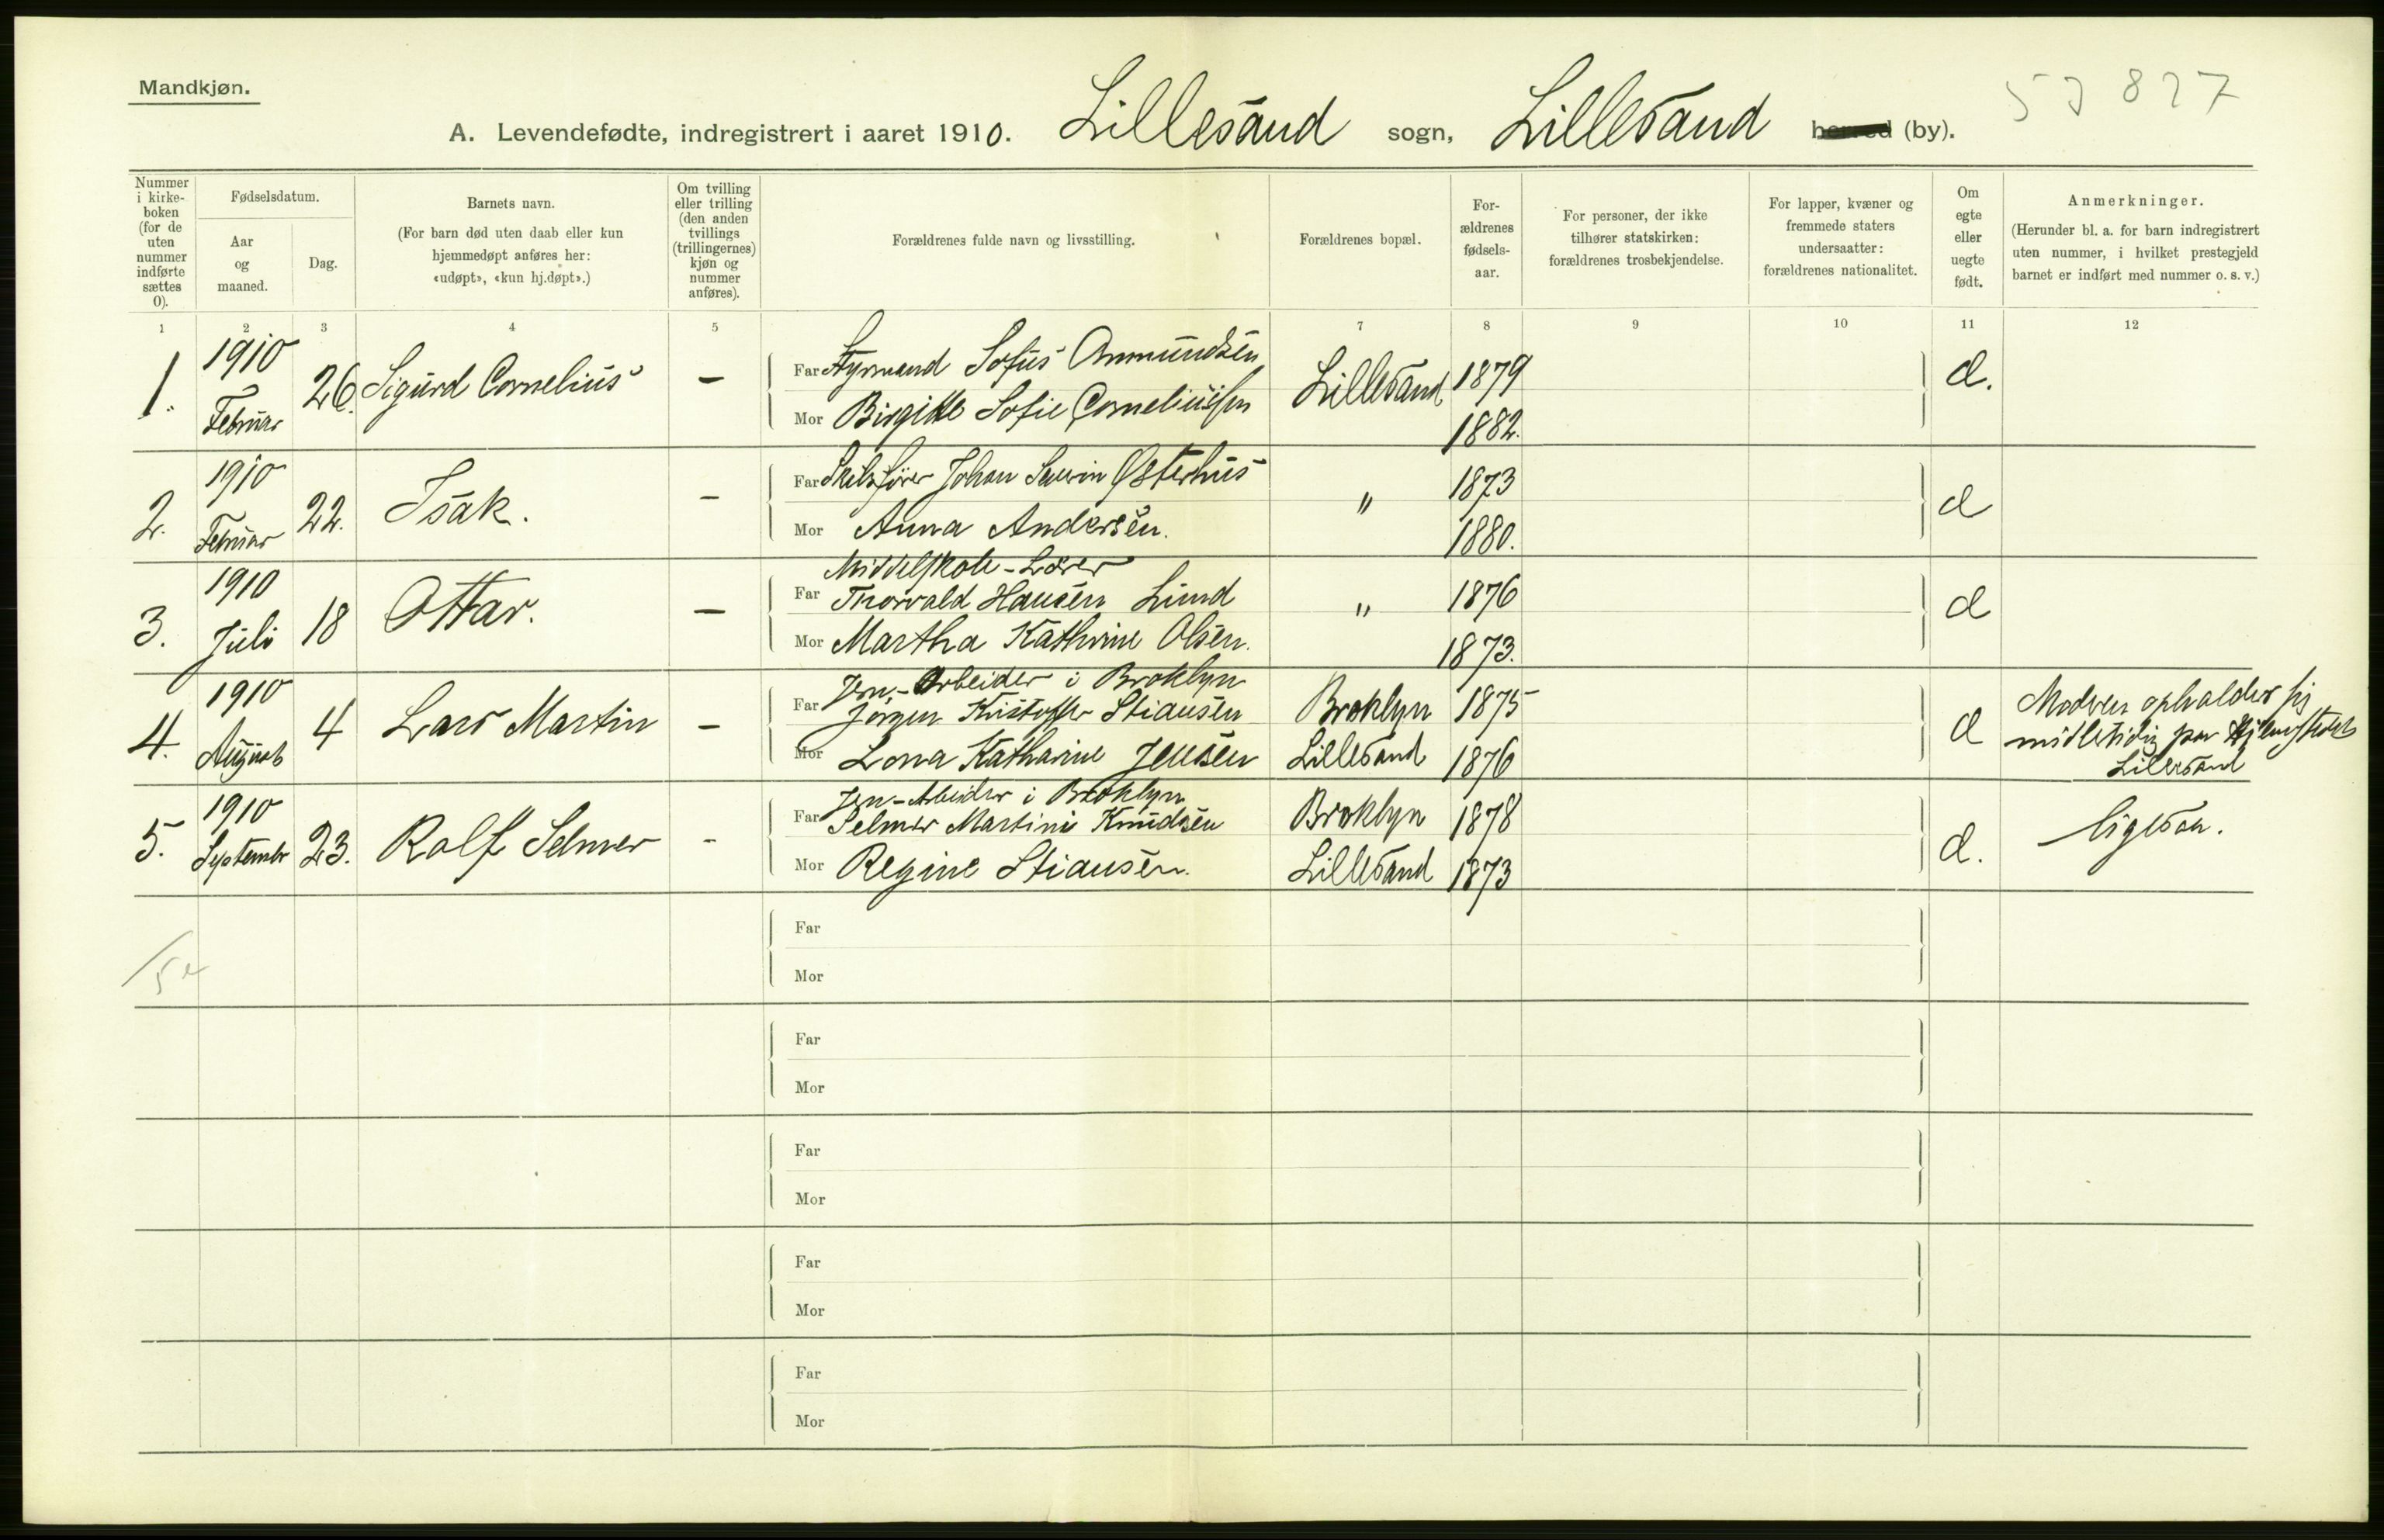 Mandkjøn.
53827
A. Levendefødte, indregistrert i aaret 1910. Lillesand sogn, Lillesand herred (by).
Nummer i kirke- boken (for de uten nummer indførte sættes 0).
Fødselsdatum.
Aar og maaned.
Dag.
Barnets navn.
(For barn død uten daab eller kun hjemmedøpt anføres her: «udøpt», «kun hj.døpt».)
Om tvilling eller trilling (den anden tvillings (trillingernes) kjøn og nummer anføres).
Forældrenes fulde navn og livsstilling.
Forældrenes bopæl.
For- ældrenes fødsels- aar.
For personer, der ikke tilhører statskirken: forældrenes trosbekjendelse.
For lapper, kvæner og fremmede staters undersaatter: forældrenes nationalitet.
Om egte eller uegte født.
Anmerkninger.
(Herunder bl. a. for barn indregistrert uten nummer, i hvilket prestegjeld barnet er indført med nummer o. s. v.)
1 2 3 4 5 7 8 9 10 11 12
1. 1910 Februar 26. Sigurd Cornelius - Far Styrmand Sofus Anmundsen Lillesand 1879 d.
Mor Birgitte Sofie Corneliussen 1882.
2. 1910 Februar 22. Isak. - Far Skibsfører Johan Severin Østerhus " 1873 d
Mor Anna Andersen. 1880.
3. 1910 Juli 18 Ottar. - Middelskole-Lærer
Far Thorvald Hansen Lund " 1876 d
Mor Martha Kathrine Olsen. 1873.
4. 1910 August 4 Lars Martin - Jern-Arbeider i Broklyn
Far Jörgen Kristoffer Stiansen Broklyn 1875 d Moderen opholder sig
Mor Lona Katharine Jensen Lillesand 1876 midlertidig paa Hjemstedet
Lillesand
5. 1910 September 23. Rolf Selmer - Jern-Arbeider i Broklyn
Far Selmer Martini Knudsen Broklyn 1878 d. ligesaa.
Mor Regine Stiansen. Lillesand 1873
Far
Mor
Far
Mor
Far
Mor
Far
Mor
Far
Mor